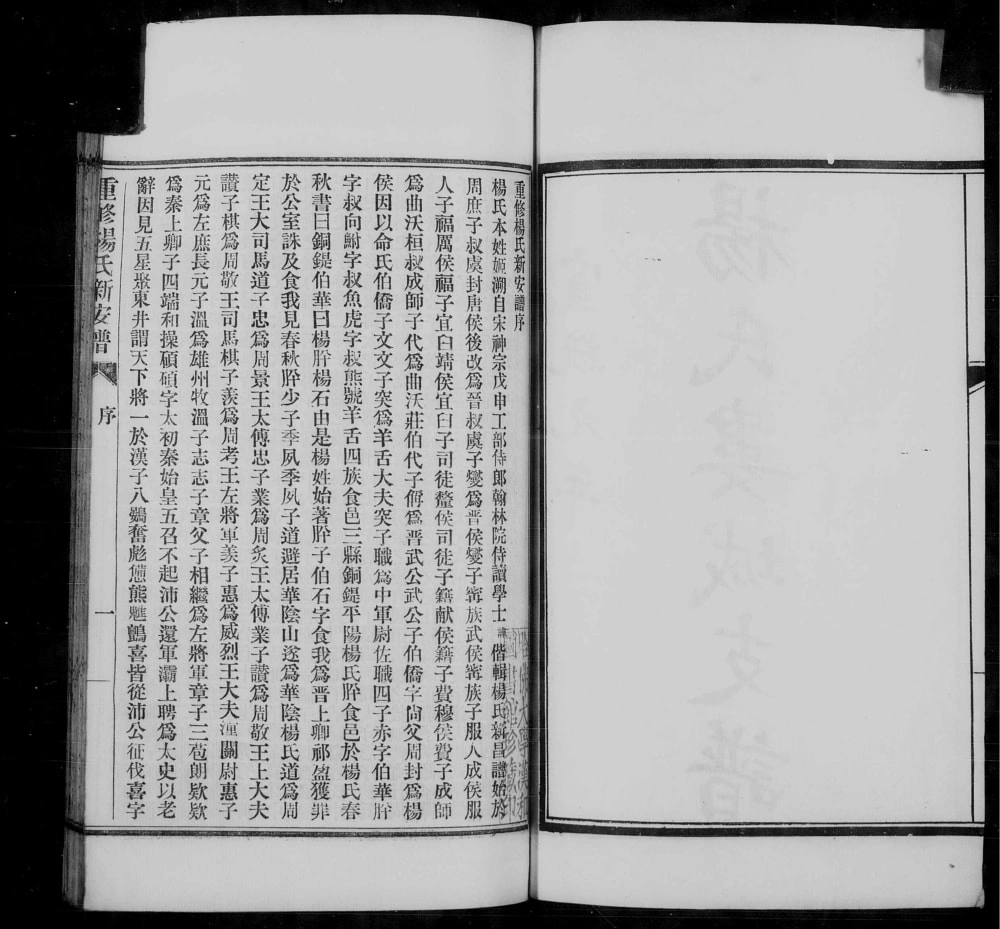 重修楊氏新安譜序
楊氏本姓姬溯自宋神宗戊申工部侍郎翰林院侍讀學士諱偕輯楊氏新昌譜始於
周庶子叔虞封唐侯後改爲晉叔虞子燮爲晉侯燮子甯族武侯甯族子服人成侯服
人子福厲侯福子宜臼靖侯宜臼子司徒釐侯司徒子籍献侯籍子費穆侯費子成師
爲曲沃桓叔成師子代爲曲沃莊伯代子偁爲晋武公武公子伯僑字尙父周封爲楊
侯因以命氏伯僑子文文子突爲羊舌大夫突子職爲中軍尉佐職四子赤字伯華肸
字叔向鮒字叔魚虎字叔熊號羊舌四族食邑三縣銅鍉平陽楊氏肸食邑於楊氏春
秋書曰銅鍉伯華曰楊肸楊石由是楊姓始著肸子伯石字食我爲晋上卿祁盈獲罪
於公室誅及食我見春秋肸少子季夙季夙子道避居華陰山遂爲華陰楊氏道爲周
定王大司馬道子忠爲周景王太傅忠子業爲周炙王太傅業子讃爲周敬王上大夫
讃子棋爲周敬王司馬棋子羨爲周考王左將軍羙子惠爲威烈王大夫潼關尉惠子
元爲左庶長元子溫爲雄州牧溫子志志子章父子相繼爲左將軍章子三苞朗欵欵
爲秦上卿子四端和操碩碩字太初秦始皇五召不起沛公還軍灞上聘爲太史以老
辭因見五星聚東井謂天下將一於漢子八鸚奮彪儓熊魋鸇喜皆從沛公征伐喜字
重修楊氏新安譜
序
一